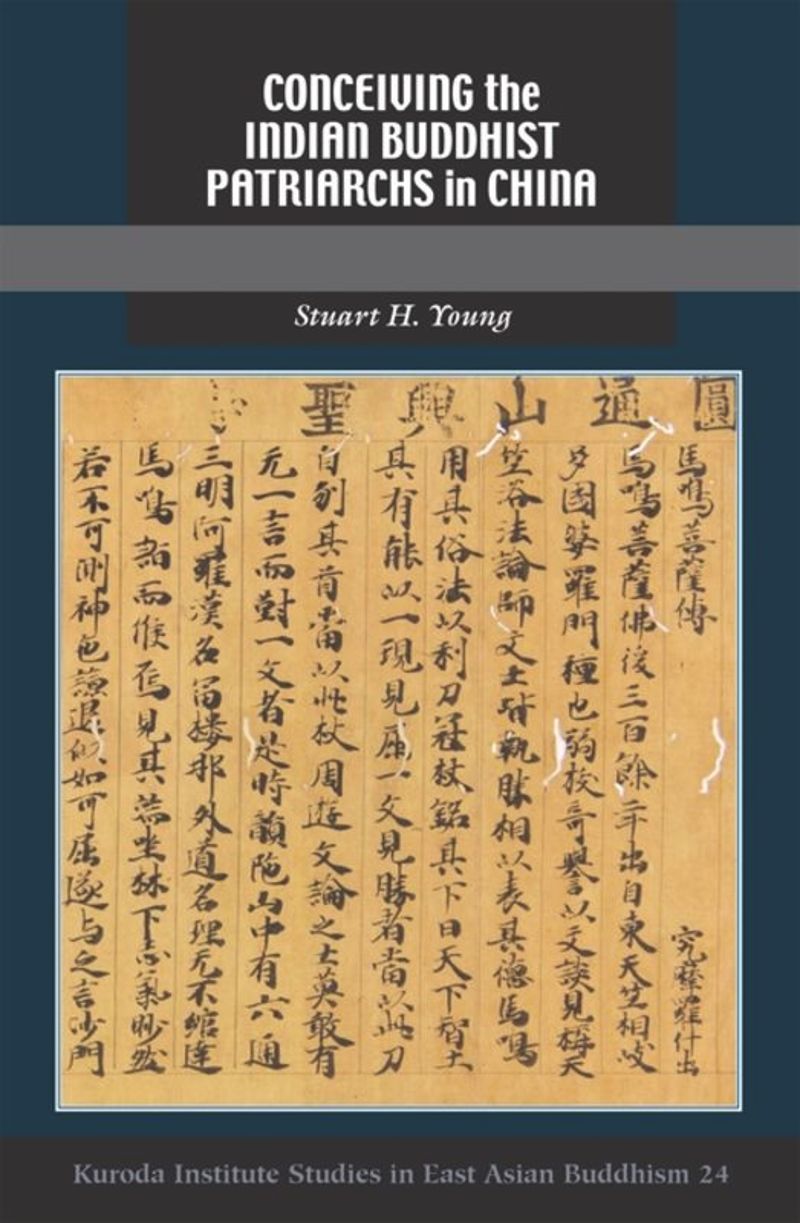 CONCEIVING the
INDIAN BUDDHIST
PATRIARCHS in CHINA
Stuart H. Young
圓通山興聖
馬鳴菩薩傳 羅什出
馬鳴菩薩佛後三百餘年出自東天竺相岐
多國婆羅門種也弱狡奇譽以文談見稱天
竺俗法論師文士皆執勝相以表其德馬鳴
用其俗法以利刀冠杖銘其下曰天下智士
其有能以一現見屈一文見勝者當以此刀
自刎其首常以此杖周遊文論之士莫敢有
无一言而對一文者是時韻陁山中有六通
三明阿羅漢名富樓那外道名理无不綰達
馬鳴詣而候焉見其端坐林下志氣眇然
若不可測神色謙退似如可屈遂与之言沙門
Kuroda Institute Studies in East Asian Buddhism 24